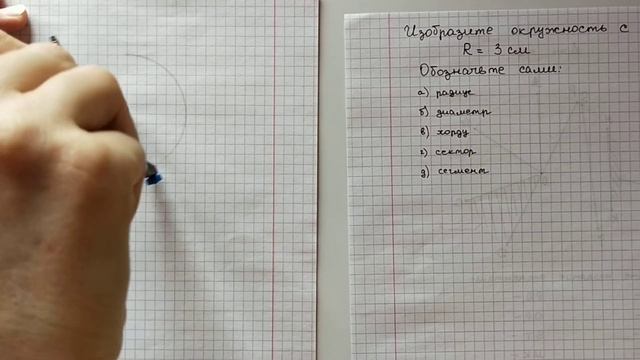 Изобразите окружность с
R = 3 см
Обозначьте сами:
а) радиус
б) диаметр
в) хорду
г) сектор
д) сегмент